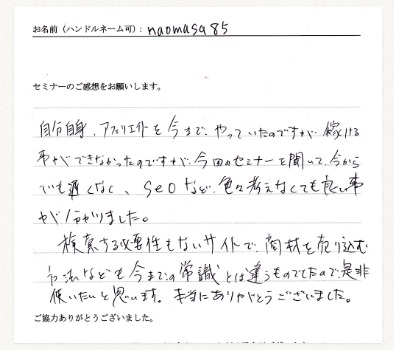 お名前（ハンドルネーム可）：naomasa85
セミナーのご感想をお願いします。
自分自身、アフィリエイトを今まで、やっていたのですが、稼げる
事ができなかったのですが、今回のセミナーを聞いて、今から
でも遅くなく、seoなど、色々考えなくても良い事
が分かりました。
検索する必要性もないサイトで、商材を売り込む
方法なども今までの常識とは違うものでしたので是非
使いたいと思います。本当にありがとうございました。
ご協力ありがとうございました。